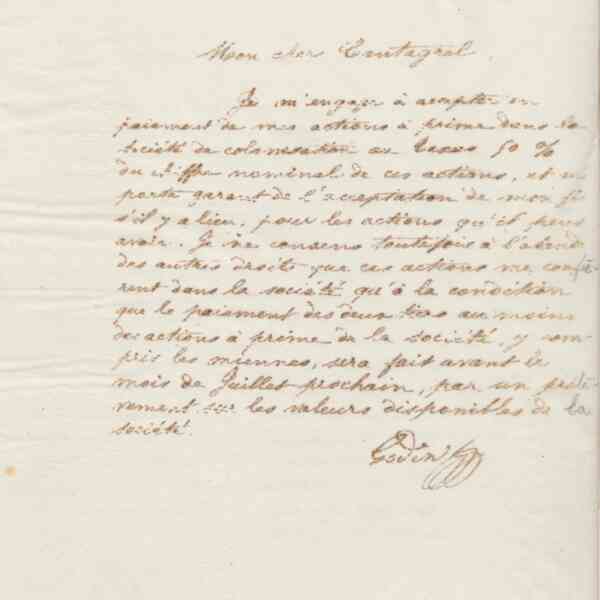 Mon cher Cantagrel,
Je m'engage à accepter en
paiement de mes actions à prime dans la
société de colonisation au Texas 50 %
du chiffre nominal de ces actions, et me
porte garant de l'acceptation de mon fils
s'il y a lieu, pour les actions qu'il peut
avoir. Je ne consens toutefois à l'abandon
des autres droits que ces actions me confè-
rent dans la société qu'à la condition
que le paiement des deux tiers au moins
des actions à prime de la société, y com-
pris les miennes, sera fait avant le
mois de Juillet prochain, par un prélè-
vement sur les valeurs disponibles de la
société.
Godin